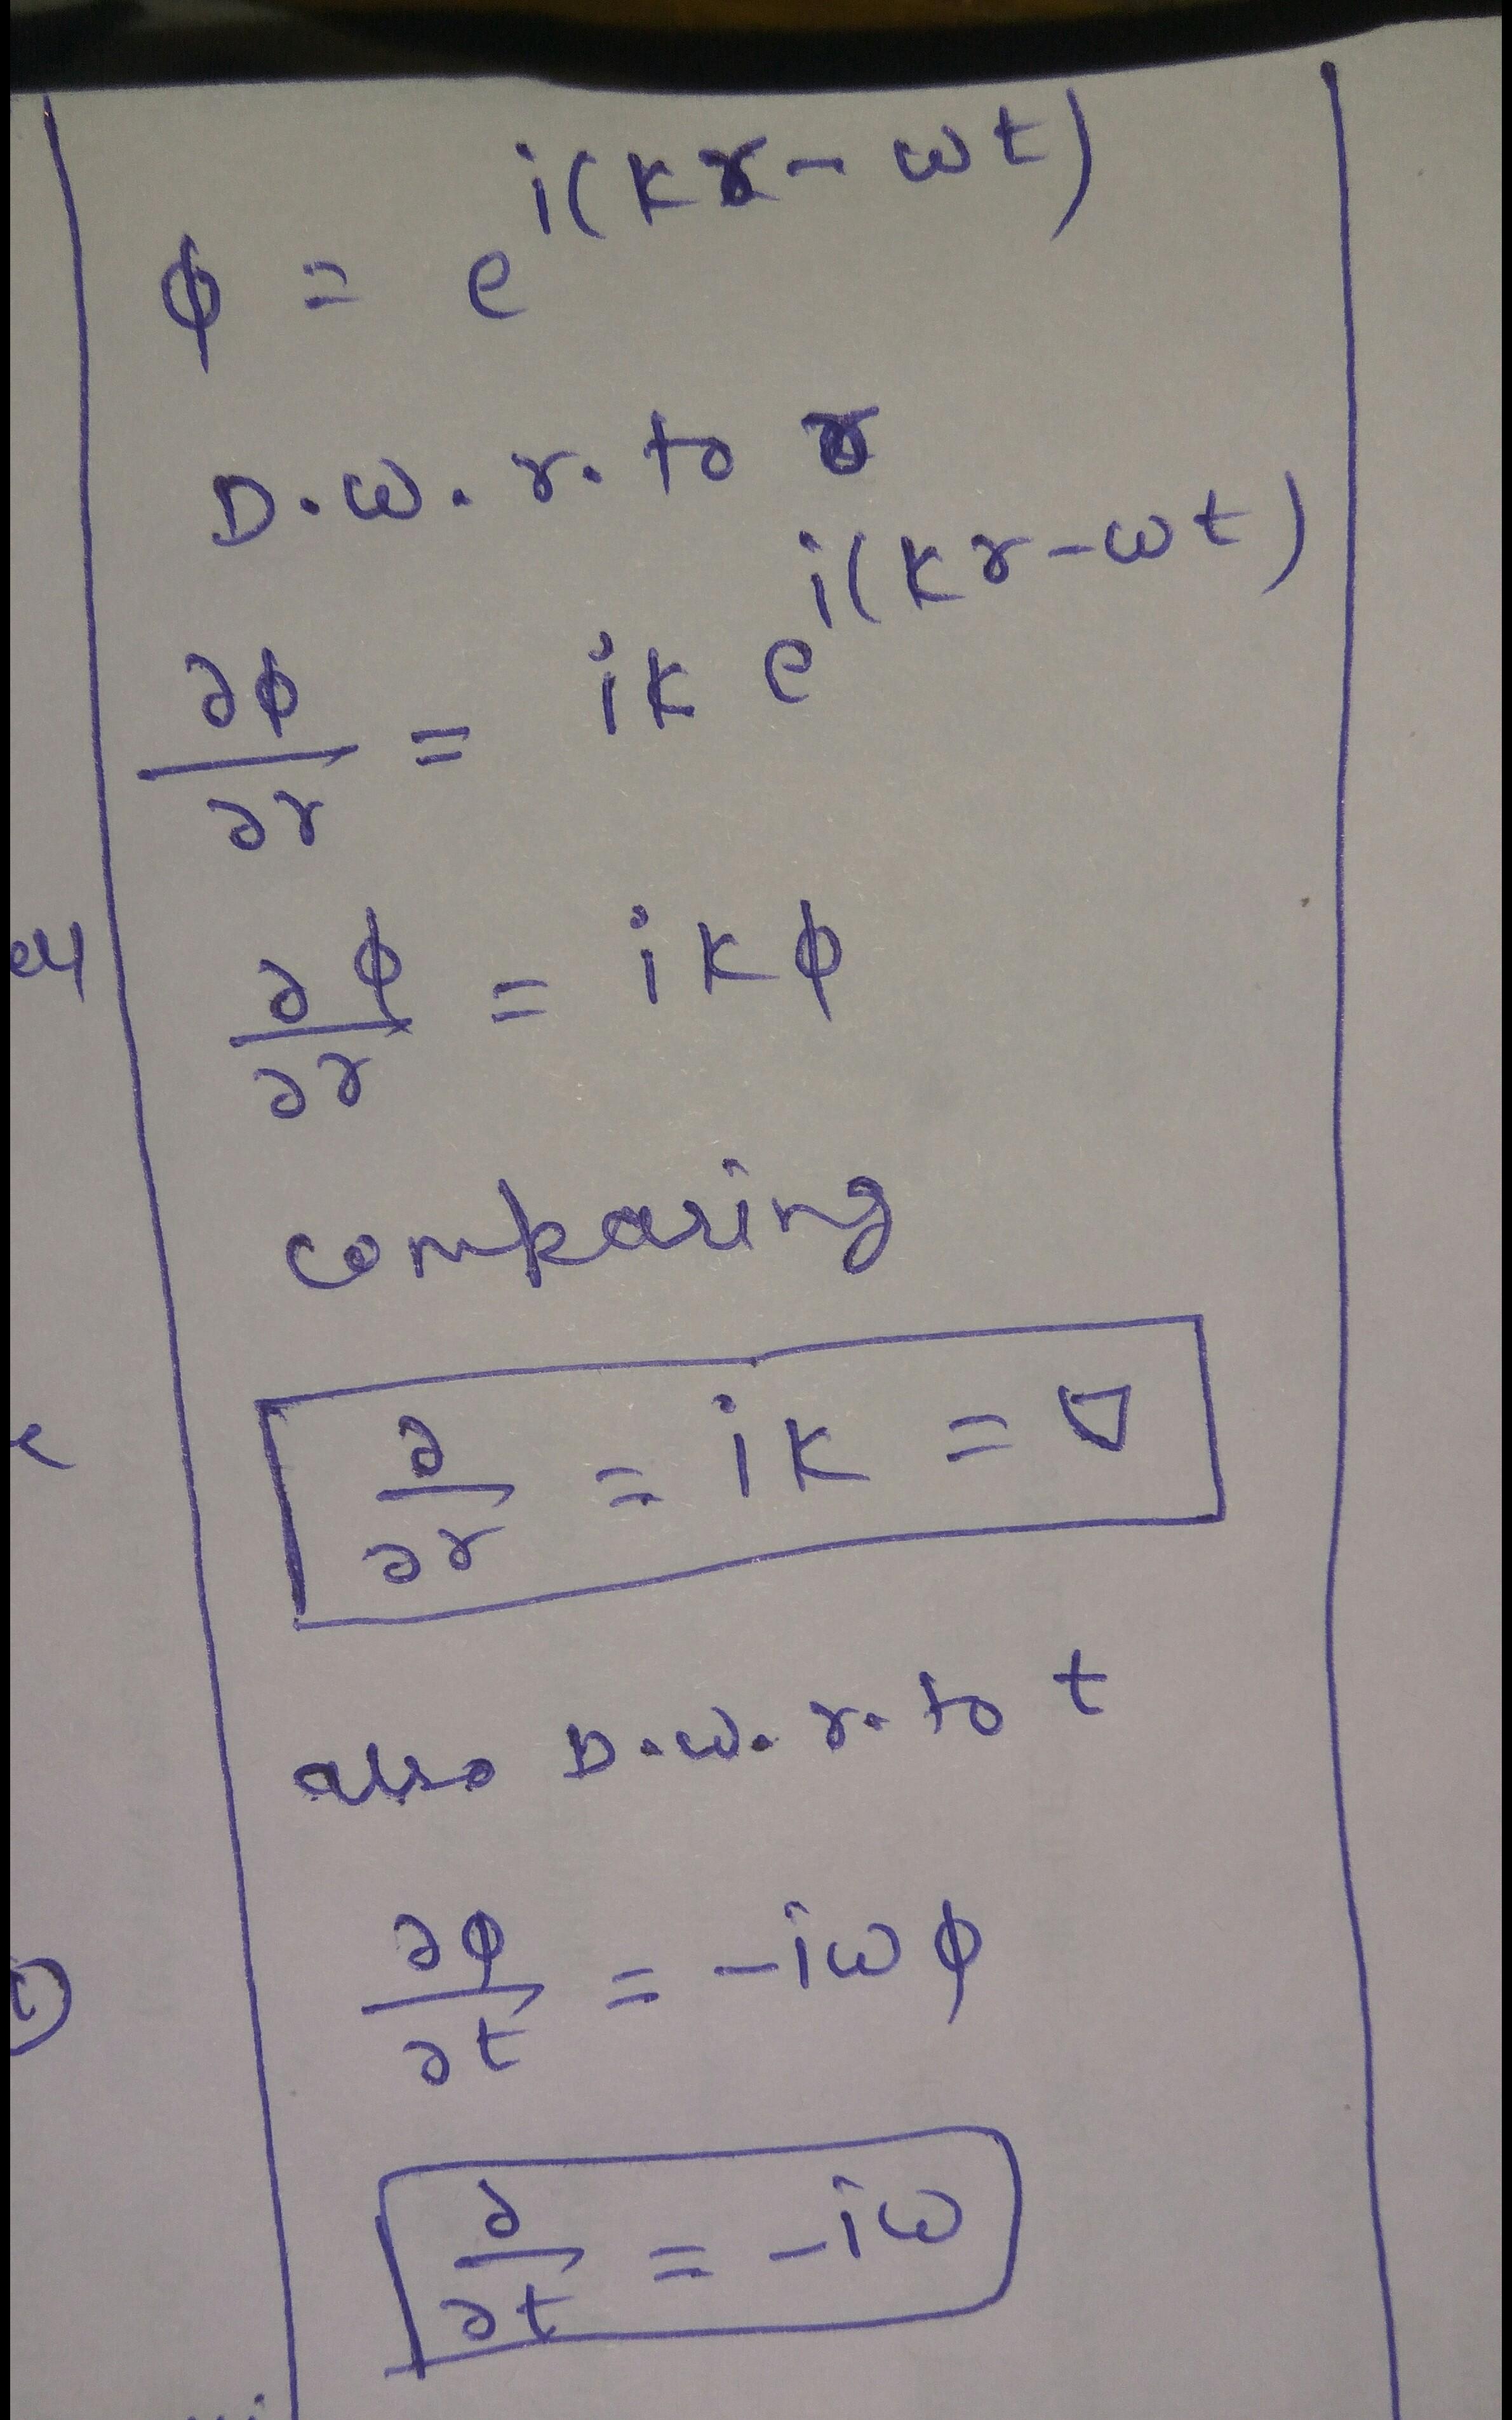 ϕ = e^{i(kr - ωt)}
D.w.r. to r
∂ϕ/∂r = ik e^{i(kr-ωt)}
∂ϕ/∂r = ikϕ
comparing
∂/∂r = ik = ∇
also D.w.r. to t
∂ϕ/∂t = -iωϕ
∂/∂t = -iω